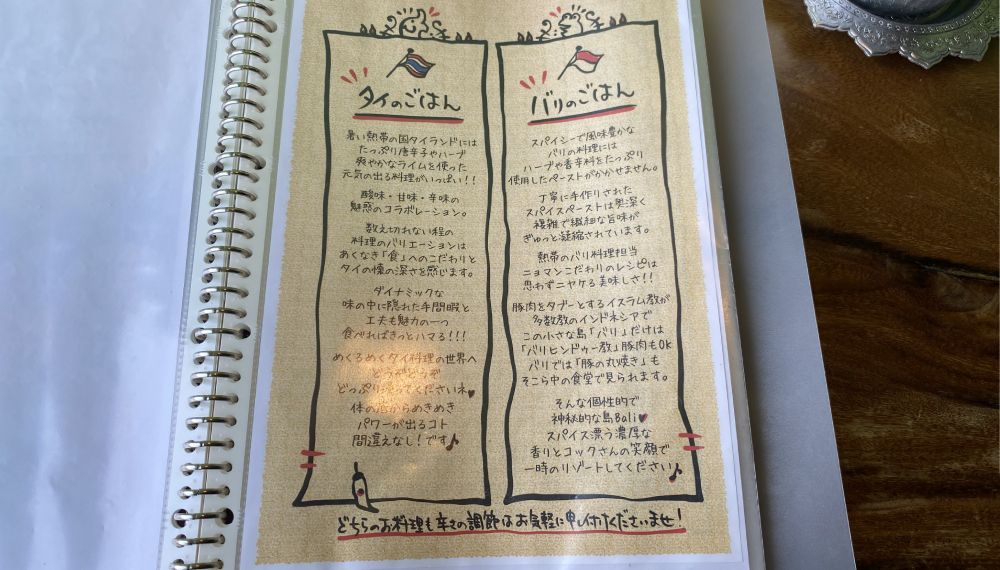 タイのごはん
暑い熱帯の国タイランドには
たっぷり唐辛子やハーブ
爽やかなライムを使った
元気の出る料理がいっぱい!!
酸味・甘味・辛味の
魅惑のコラボレーション。
数え切れない程の
料理のバリエーションは
あくなき「食」へのこだわりと
タイの懐の深さを感じます。
ダイナミックな
味の中に隠れた手間暇と
工夫も魅力の一つ
食べればきっとハマる!!!
めくるめくタイ料理の世界へ
どうぞどうぞ
どっぷり してくださいネ♥
体の芯からめきめき
パワーが出るコト
間違えなし!です♪
バリのごはん
スパイシーで風味豊かな
バリの料理には
ハーブや香辛料をたっぷり
使用したペーストがかかせません。
丁寧に手作りされた
スパイスペーストは奥深く
複雑で繊細な旨味が
ぎゅっと凝縮されています。
熱帯のバリ料理担当
ニョマンこだわりのレシピは
思わずニヤケる美味しさ!!
豚肉をタブーとするイスラム教が
多数教のインドネシアで
この小さな島「バリ」だけは
「バリヒンドゥー教」豚肉もOK
バリでは「豚の丸焼き」も
そこら中の食堂で見られます。
そんな個性的で
神秘的な島Bali♥
スパイス漂う濃厚な
香りとコックさんの笑顔で
一時のリゾートしてください♪
どちらのお料理も辛さの調節はお気軽に申し付けくださいませ!